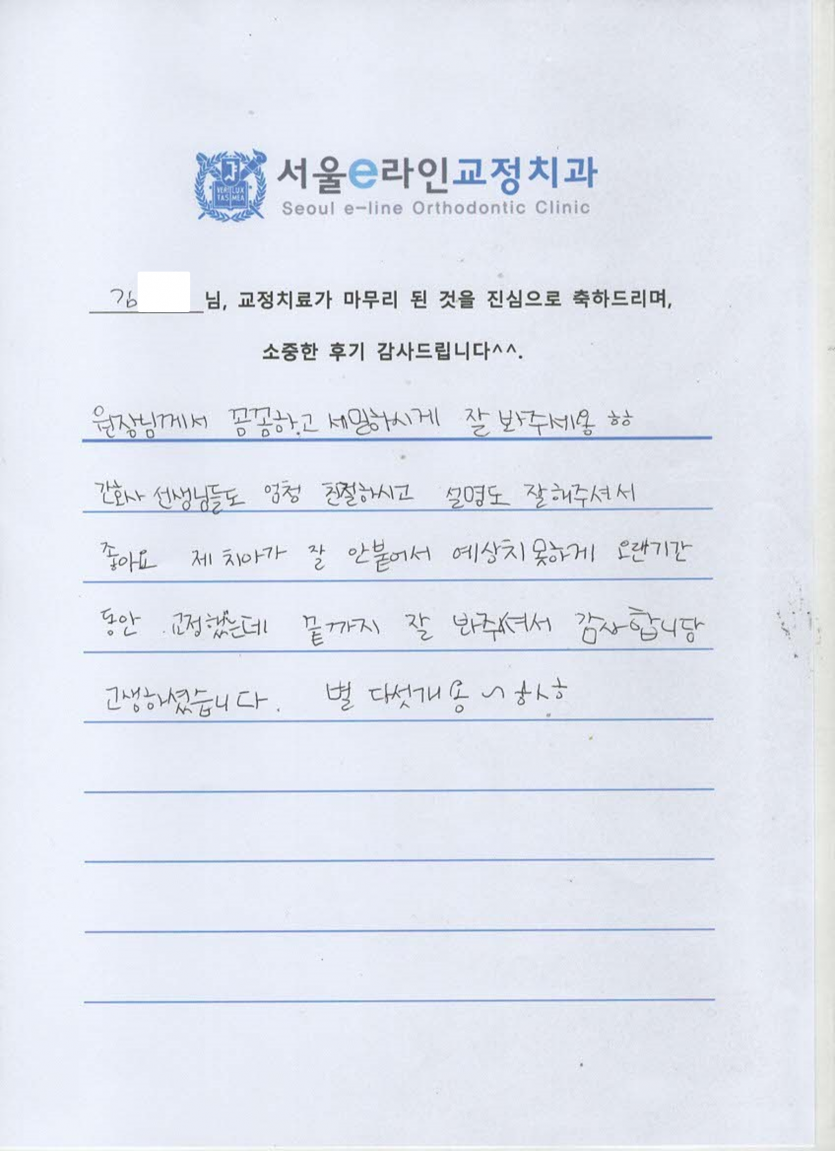 VERI LUX TAS MEA
서울e라인교정치과
Seoul e-line Orthodontic Clinic
김 님, 교정치료가 마무리 된 것을 진심으로 축하드리며,
소중한 후기 감사드립니다^^.
원장님께서 꼼꼼하고 세밀하시게 잘 봐주세용 ㅎㅎ
간호사 선생님들도 엄청 친절하시고 설명도 잘해주셔서
좋아요 제 치아가 잘 안붙어서 예상치 못하게 오랜기간
동안 교정했는데 끝까지 잘 봐주셔서 감사합니당
고생하셨습니다. 별 다섯개용 ~ ㅎㅅㅎ